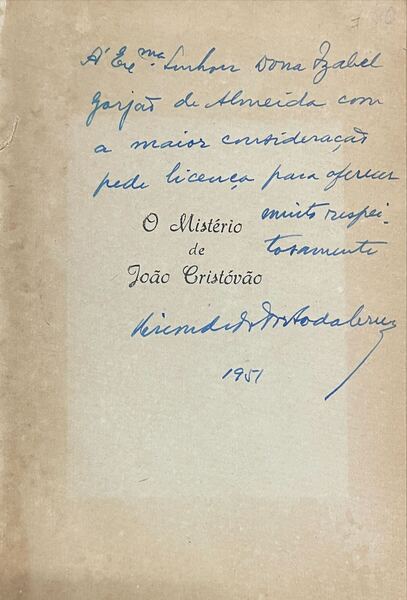 À Ex.ma Senhora Dona Izabel
Gorjão de Almeida com
a maior consideração
pede licença para oferecer
muito respei-
tosamente
O Mistério
de
João Cristóvão
Visconde do Porto da Cruz
1951